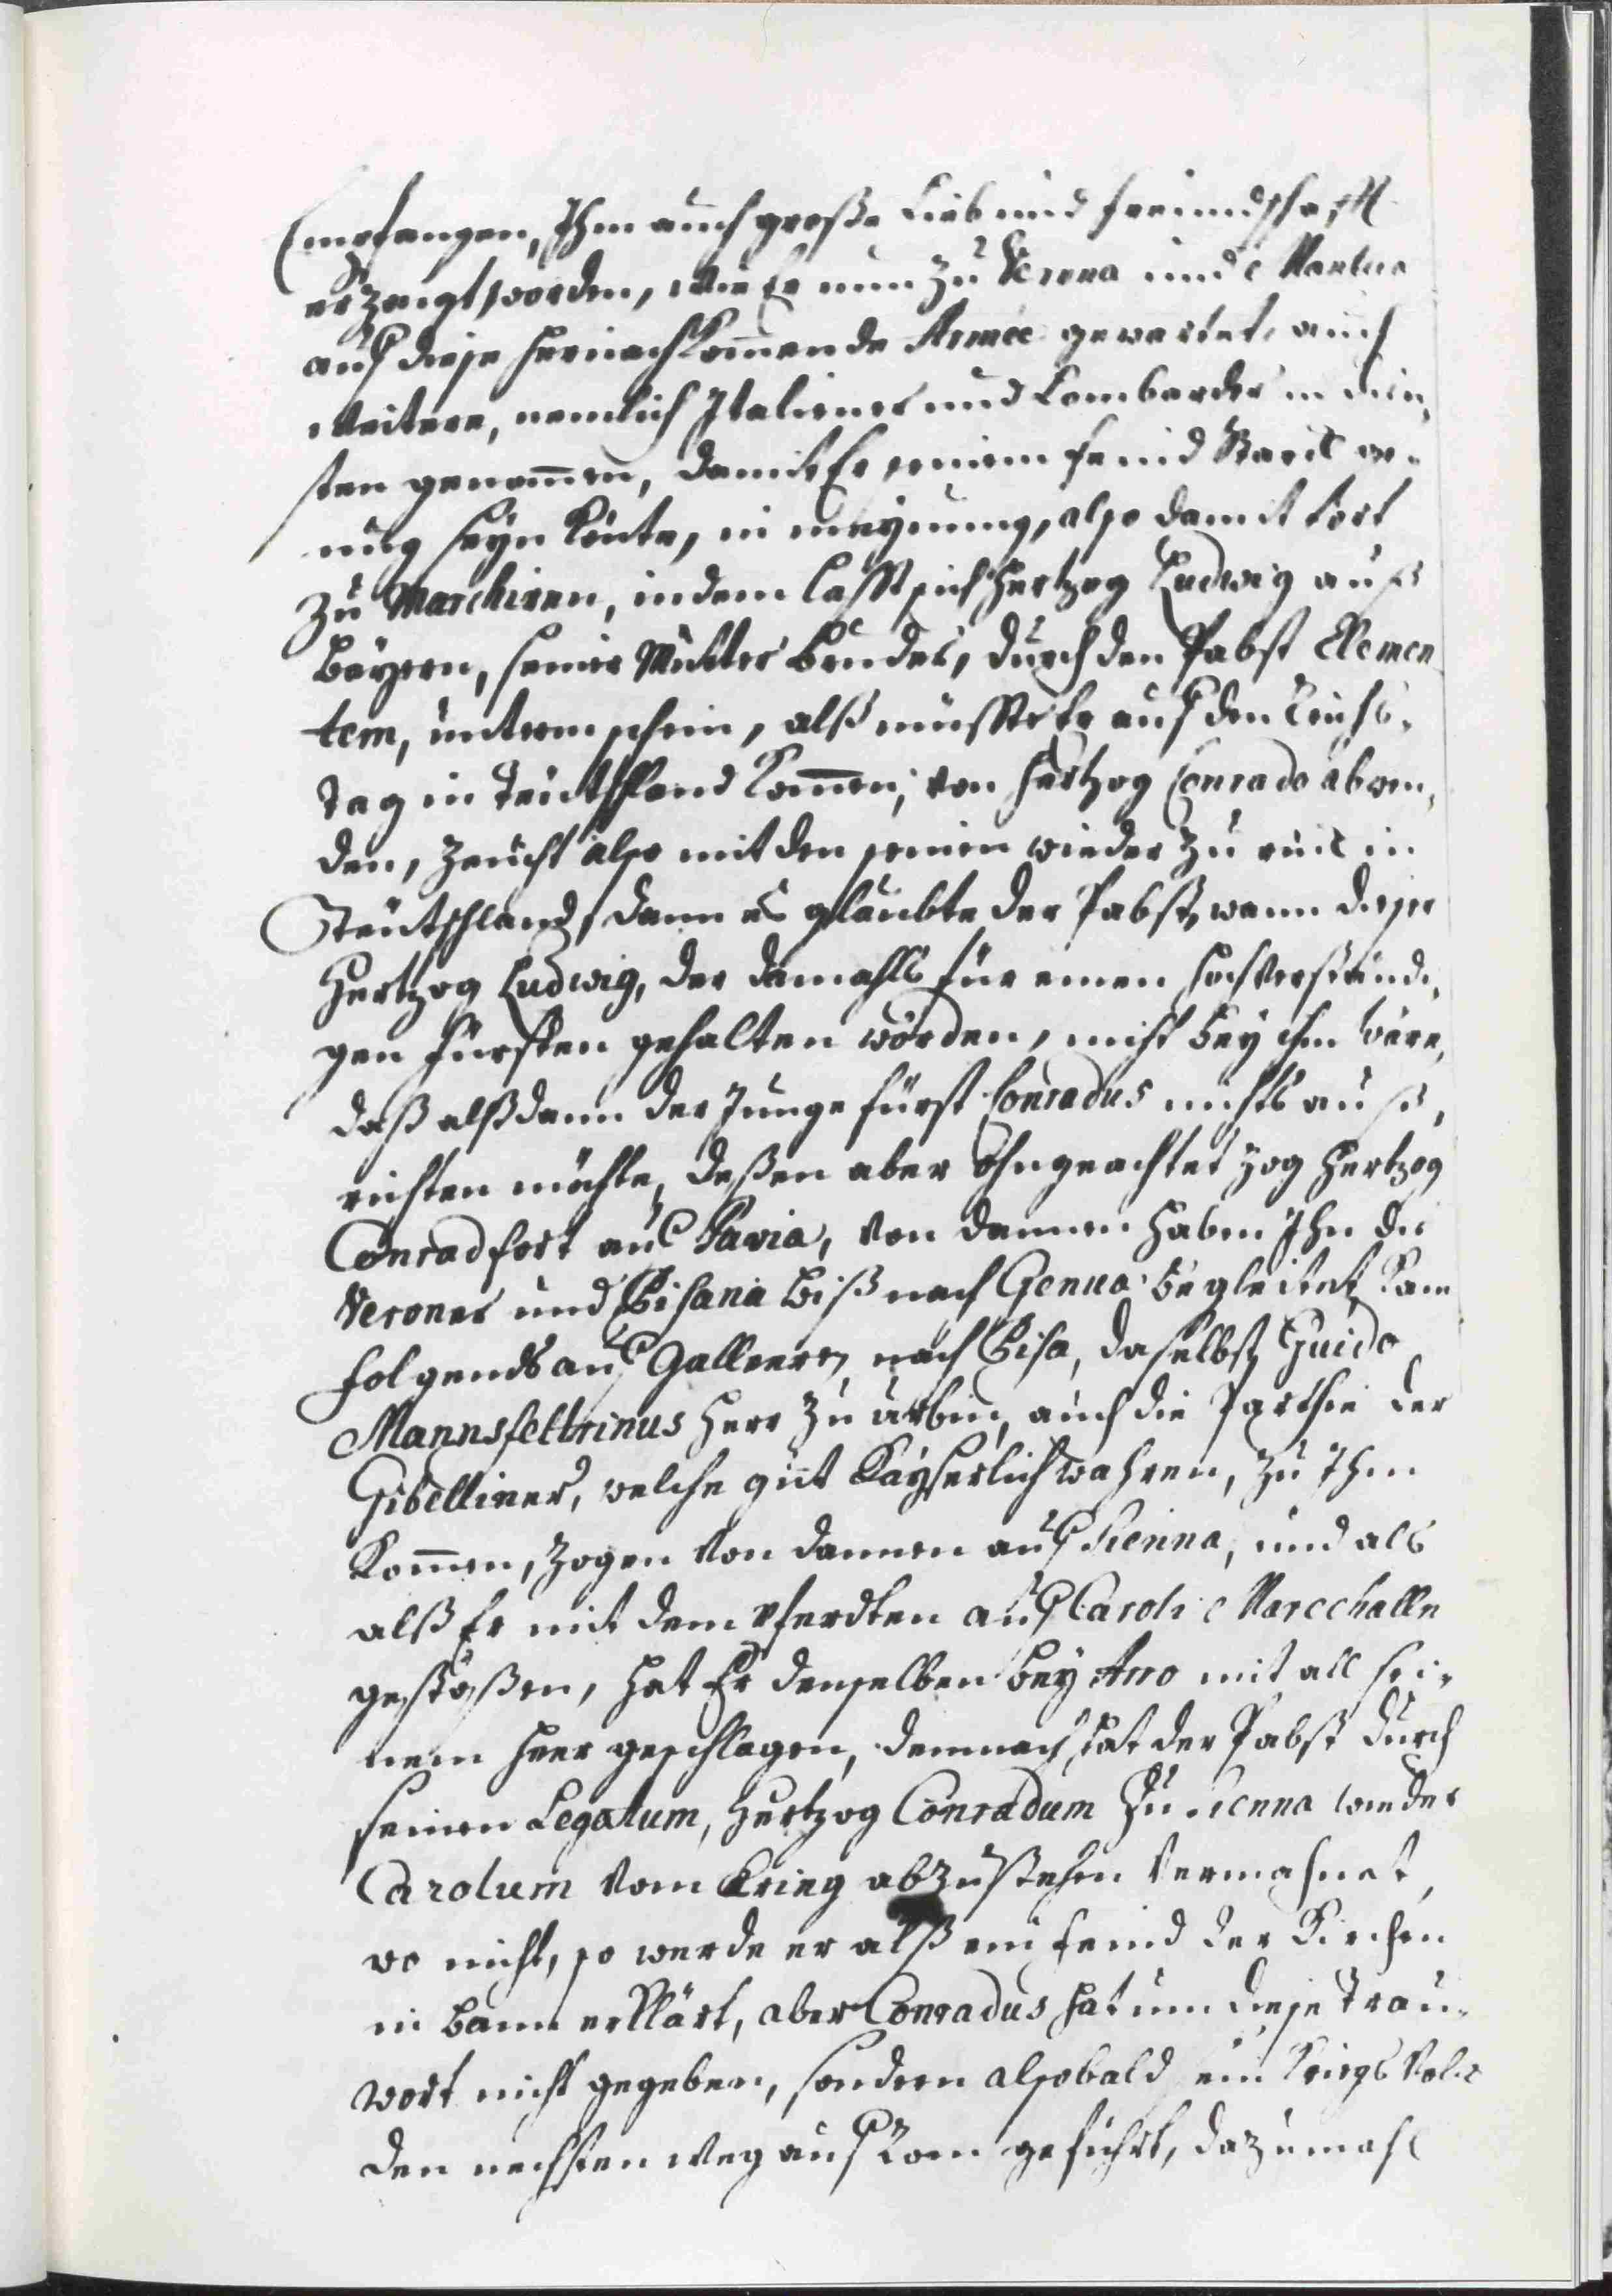 Empfangen, Ihm auch große Lieb und freundschafft
erzeugt worden, wie Er nun zu Verona und Mantua
auf diese hernachkom̄ende Armée gewartet, auch
weitere, nemlich Italiener und Lombarder in dien,
sten genom̄en, damit Er seinem feind starck ge-
nug seyn könte, in meynung, also damit fort
zu Marchiren, indem lässt sich Hertzog Ludwig auß
Bayern, seiner Mutter Bruder, durch den Pabst Clemen
tem, unterm schein, alß müsste Er auf den Reichs-
tag in Teutschland kom̄en, von Hertzog Conrado abwen,
den, zeucht also mit den seinen wieder zu ruck in
Teutschland, dann es glaubte der Pabst, wann dieser
Hertzog Ludwig, der damahls für einen hochverständi,
gen fürsten gehalten worden, nicht bey ihm wäre,
daß alßdann der Junge fürst Conradus nichts auß,
richten möchte, deßen aber Ohngeachtet zog Hertzog
Conrad fort auf Pavia, von dannen haben Ihn die
Veroner und Pisania biß nach Genua begleitet, kam
folgends auf Galleern nach Pisa, daselbst Guido
Mannsfeltrinus Herr zu Urbin, auch die Parthie der
Gibelliner, welche gut Kayserlich wahren, zu Ihm
kom̄en, zogen von dannen auf Sienna, und als
alß Er mit dem pferdten auf Caroli Marschalln
gestoßen, hat Er denselben bey Arno mit all sei-
nem Heer geschlagen, demnach hat der Pabst durch
seinen Legatum, Hertzog Conradum zu Sienna wieder
Carolum vom Krieg abzustehen vermahnet,
wo nicht, so werde er alß ein feind der Kirchen
in Bann erklärt, aber Conradus hat um diese Trau-
wort nicht gegeben, sondern alsobald ein Kriegs Volck
den nechsten weg auf Rom geführt, dazumahl